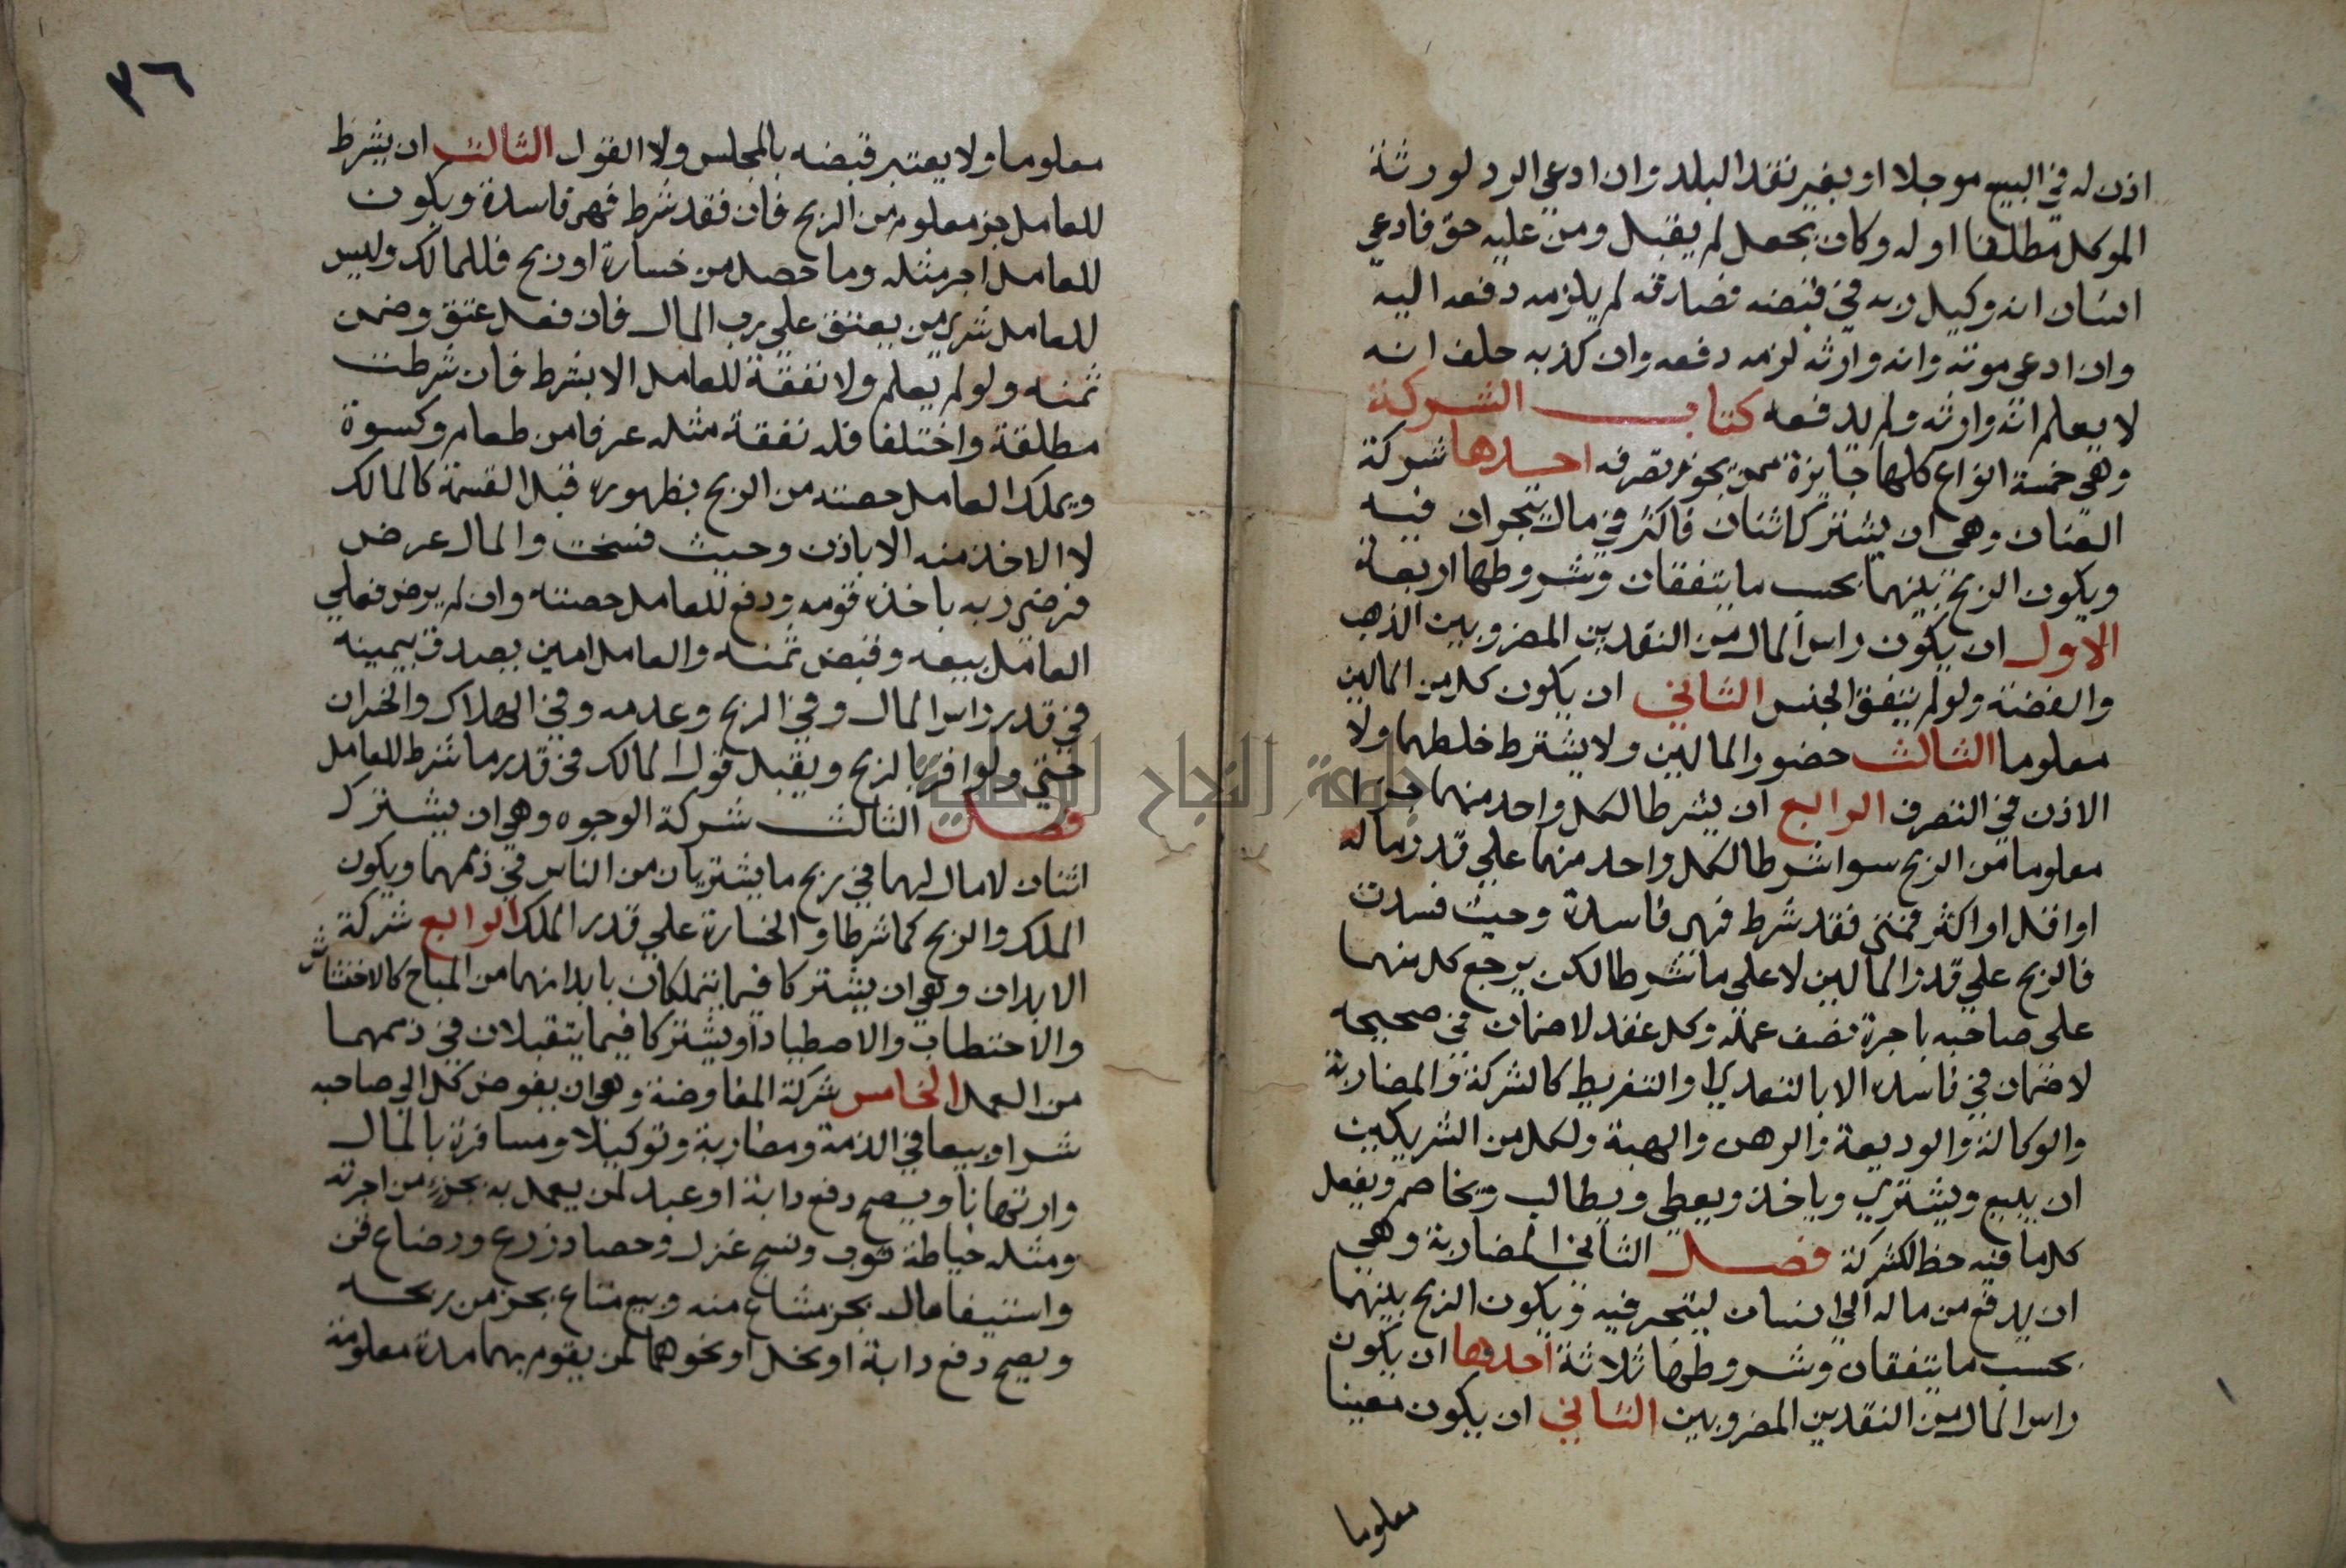 اذن له في البيع موجلا او بغير نقد البلد وان ادعي الرد لورثة
الموكل مطلقا او له وكان بجعل لم يقبل ومن عليه حق فادعي
انسان انه وكيل ربه في قبضه فصادقه لم يلزمه دفعه اليه
وان ادعي موته وانه وارثه لزمه دفعه وان كذبه حلف انه
لا يعلم انه وارثه ولم يدفعه كتاب الشركة
وهي خمسة انواع كلها جايزة ممن يجوز تصرفه احدها شركة
العنان وهي ان يشترك اثنان فاكثر في مال يتجران فيه
ويكون الربح بينهما بحسب ما يتفقان وشروطها اربعة
الاول ان يكون راس المال من النقدين المضروبين الذهب
والفضة ولو لم يتفق الجنس الثاني ان يكون كل من المالين
معلوما الثالث حضور المالين ولا يشترط خلطهما ولا
الاذن في التصرف الرابع ان يشرطا لكل واحد منهما جزا
معلوما من الربح سوا شرطا لكل واحد منهما علي قدر ماله
او اقل او اكثر فمتي فقد شرط فهي فاسدة وحيث فسدت
فالربح علي قدر المالين لا علي ما شرطا لكن يرجع كل منهما
علي صاحبه باجرة نصف عمله وكل عقد لا ضمان في صحيحه
لا ضمان في فاسده الا بالتعدي او التفريط كالشركة والمضاربة
والوكالة والوديعة والرهن والهبة ولكل من الشريكين
ان يبيع ويشتري وياخذ ويعطي ويطالب ويخاصم ويفعل
كل ما فيه حظ للشركة فصل الثاني المضاربة وهي
ان يدفع من ماله الي انسان ليتجر فيه ويكون الربح بينهما
بحسب ما يتفقان وشروطها ثلاثة احدها ان يكون
راس المال من النقدين المضروبين الثاني ان يكون معينا
معلوما
٣٦
معلوما ولا يعتبر قبضه بالمجلس ولا القول الثالث ان يشرط
للعامل جز معلوم من الربح فان فقد شرط فهي فاسدة ويكون
للعامل اجر مثله وما حصل من خسارة او ربح فللمالك وليس
للعامل شري من يعتق علي رب المال فان فعل عتق وضمن
ثمنه ولو لم يعلم ولا نفقة للعامل الا بشرط فان شرطت
مطلقة واختلفا فله نفقة مثله عرفا من طعام وكسوة
ويملك العامل حصته من الربح بظهوره قبل القسمة كالمالك
لا الاخذ منه الا باذن وحيث فسخت والمال عرض
فرضي ربه باخذه قومه ودفع للعامل حصته وان لم يرض فعلي
العامل بيعه وقبض ثمنه والعامل امين يصدق بيمينه
في قدر راس المال وفي الربح وعدمه وفي الهلاك والخسران
حتي ولو اقر بالربح ويقبل قول المالك في قدر ما شرط للعامل
فصل الثالث شركة الوجوه وهي ان يشترك
اثنان لا مال لهما في ربح ما يشتريان من الناس في ذممهما ويكون
الملك والربح كما شرطا والخسارة علي قدر الملك الرابع شركة
الابدان وهي ان يشتركا فيما يتملكان بابدانهما من المباح كالاحتشاش
والاحتطاب والاصطياد او يشتركا فيما يتقبلان في ذممهما
من العمل الخامس شركة المفاوضة وهي ان يفوض كل الي صاحبه
شرا وبيعا في الذمة ومضاربة وتوكيلا ومسافرة بالمال
وارتهانا ويصح دفع دابة او عبد لمن يعمل به بجزء من اجرته
ومثله خياطة ثوب ونسج غزل وحصاد زرع ورضاع قن
واستيفا مال بجز مشاع منه وبيع متاع بجز من ربحه
ويصح دفع دابة او نخل او نحوهما لمن يقوم بهما مدة معلومة
جامعة النجاح الوطنية